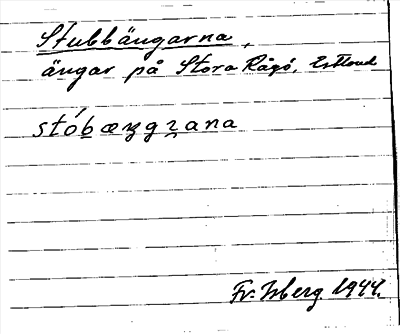 Stubbängarna,
ängar på Stora Rågö, Estland
stóbæŋgɿana
Fr: Isberg. 1944.